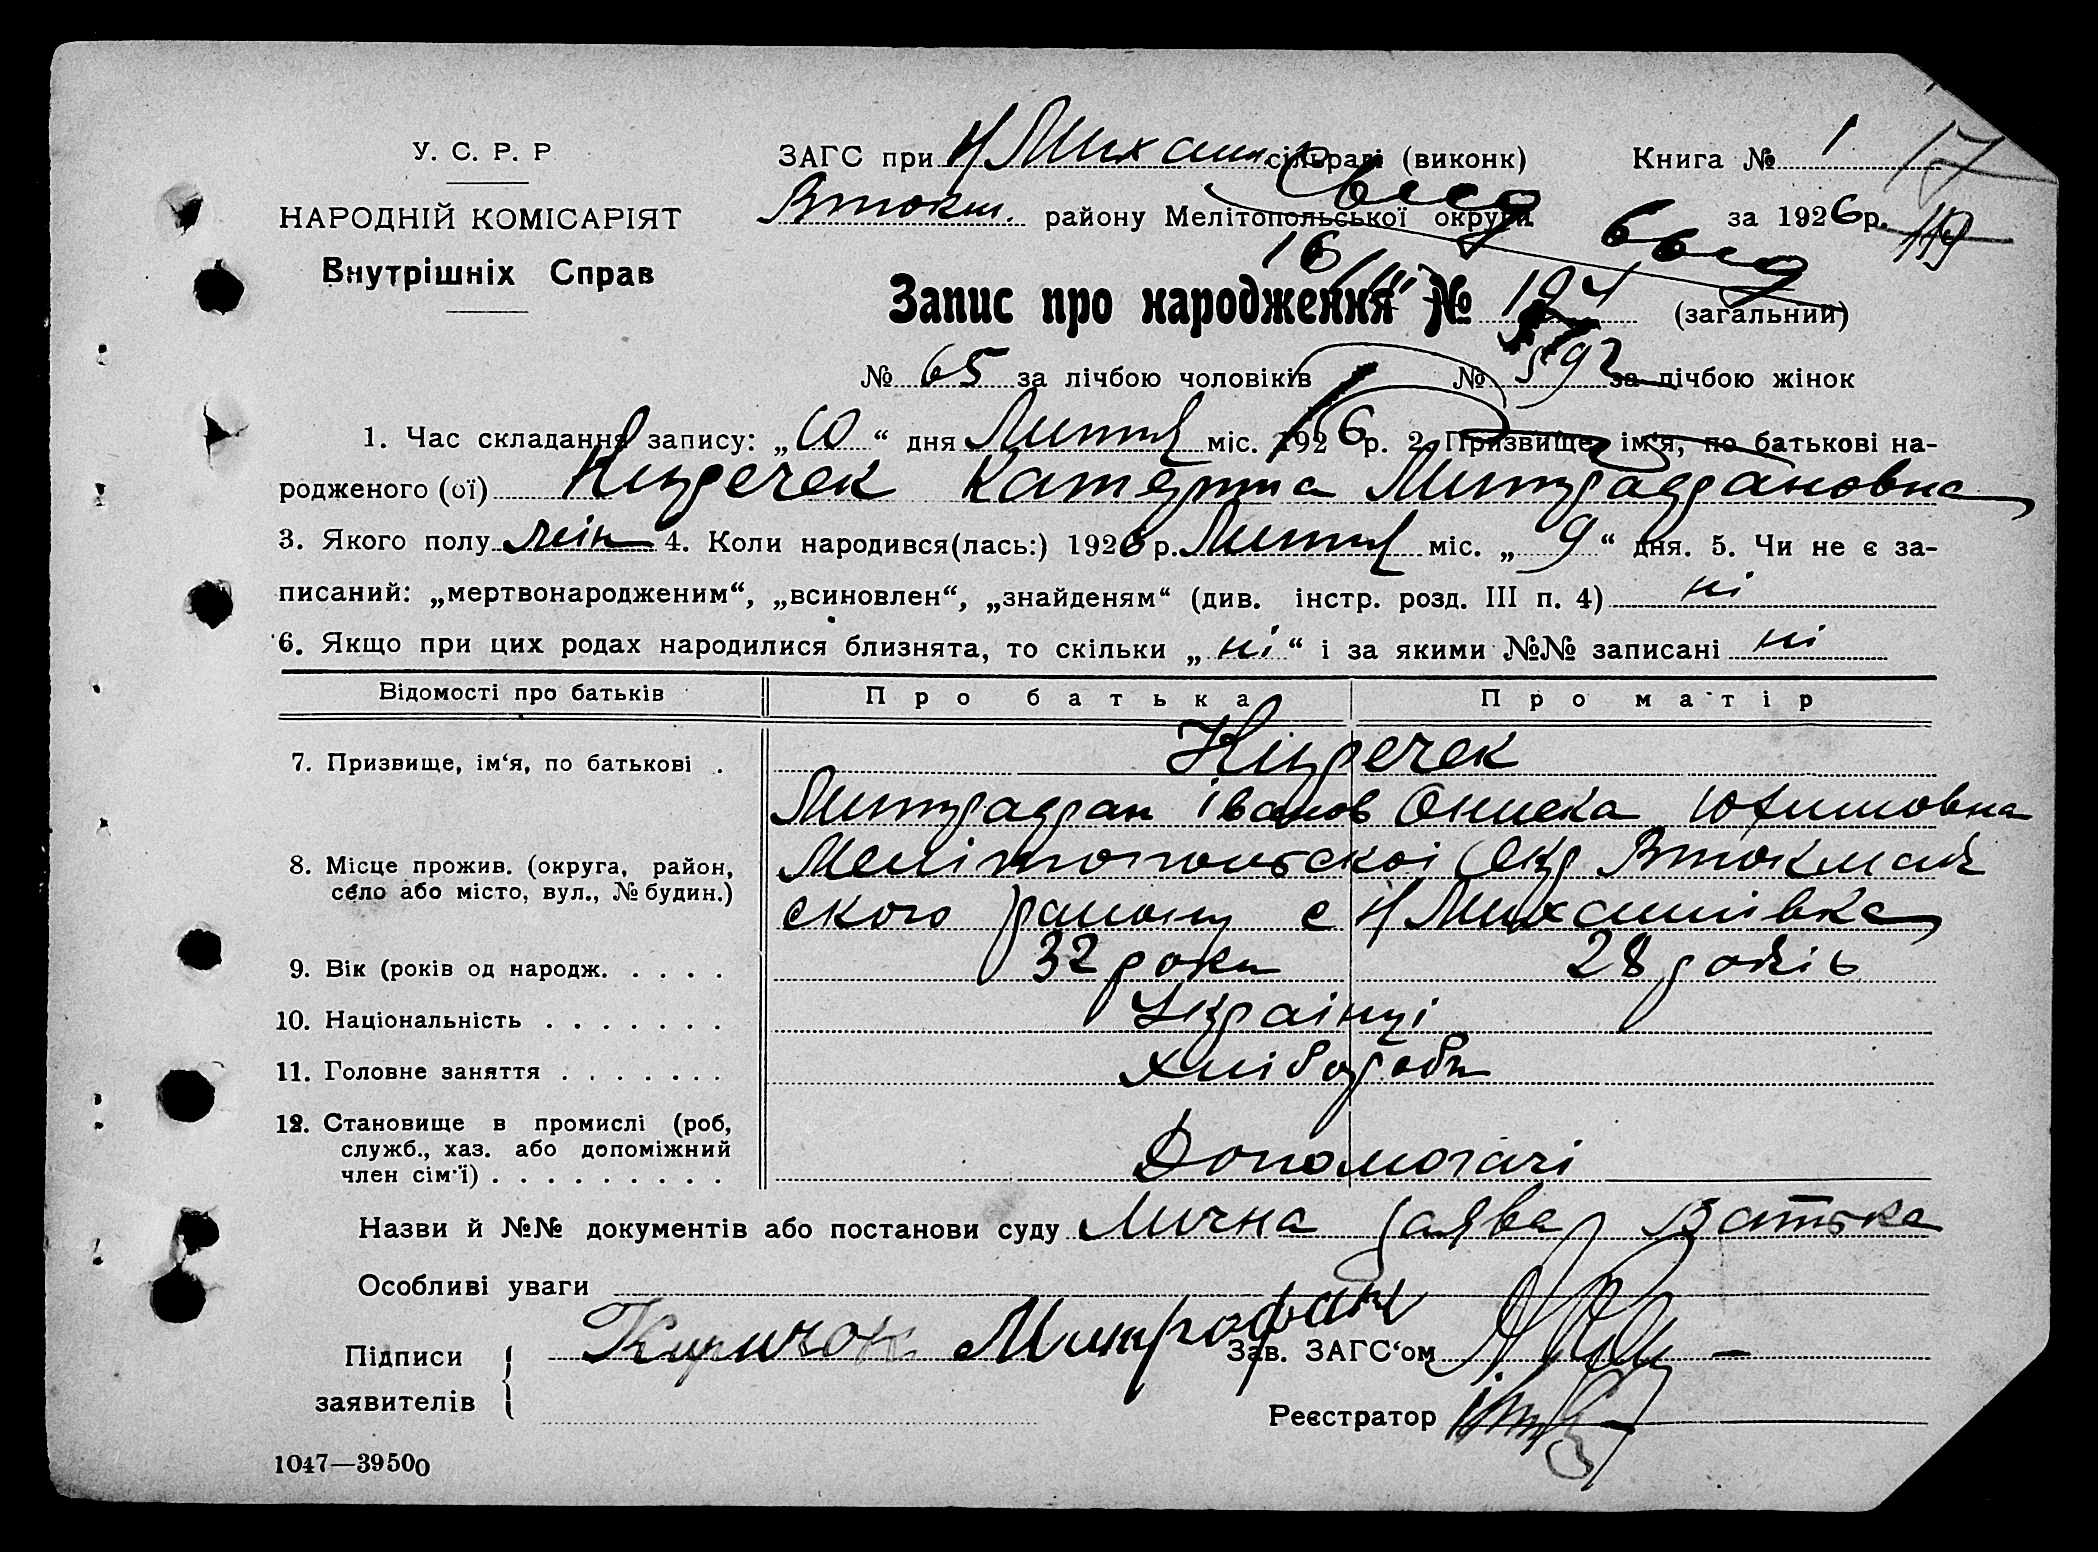 У. С. Р. Р
НАРОДНІЙ КОМІСАРІЯТ
Внутрішніх Справ
ЗАГС при Н Михайл сільраді (виконк)
Книга № 1
17
Втокм. району Мелітопольської округи
за 1926 р.
Запис про народження № (загальний)
№ 65 за лічбою чоловіків № за лічбою жінок
1. Час складання запису: „10“ дня Лютня міс. 1926 р. 2. Призвище, ім'я, по батькові на-
родженого (ої) Катерина
3. Якого полу жін 4. Коли народився(лась:) 1926 р. Лютня міс. „9“ дня. 5. Чи не є за-
писаний: „мертвонародженим“, „всиновлен“, „знайденям“ (див. інстр. розд. III п. 4) ні
6. Якщо при цих родах народилися близнята, то скільки „ні“ і за якими №№ записані ні
Відомості про батьків
Про батька
Про матір
7. Призвище, ім'я, по батькові .
іванов Юхимовна
8. Місце прожив. (округа, район,
село або місто, вул., № будин.)
Мелітопольскоі Окр Втокмач
ского району с Н Михайлівка
9. Вік (років од народж. . . . .
32 роки
28 років
10. Національність . . . . . . .
Українці
11. Головне заняття . . . . . . .
хлібороби
12. Становище в промислі (роб,
служб., хаз. або допоміжний
член сім'ї) . . . . . . . . .
Допомогачі
Назви й №№ документів або постанови суду Лична заява Батька
Особливі уваги
Підписи
заявителів
Киричок Митрофан
Зав. ЗАГС'ом
Реєстратор
1047—39500